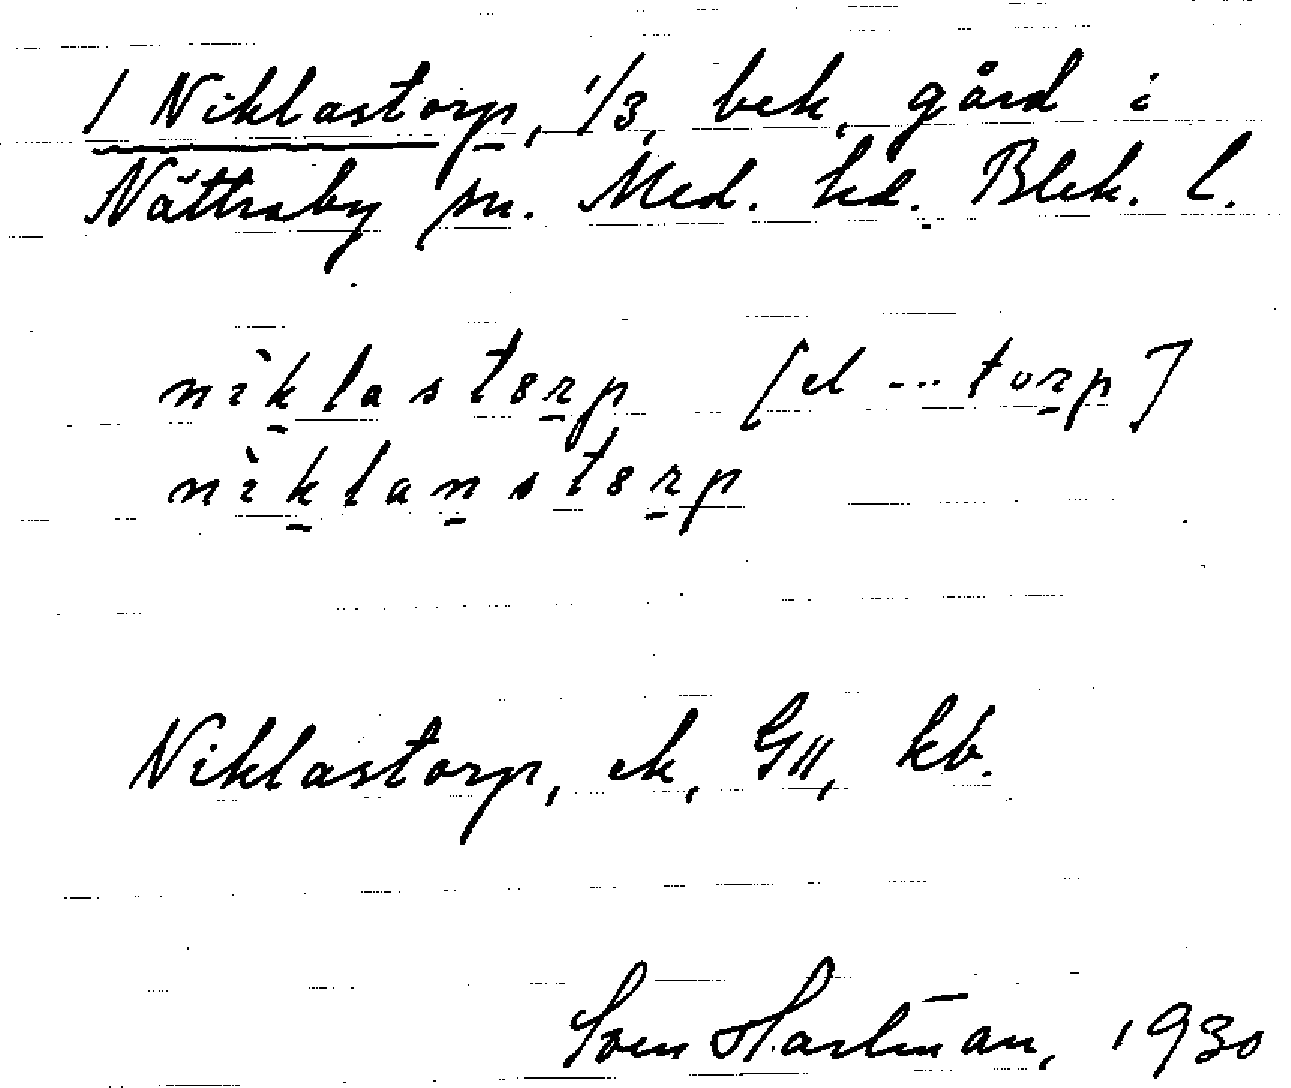 1 Niklastorp, 1/3, bek. gård i
Nättraby sn. Med. hd. Blek. l.
nìklastorp [el ... torp]
nìklanstorp
Niklastorp, ek, GII, kb.
Sven Hartman, 1930